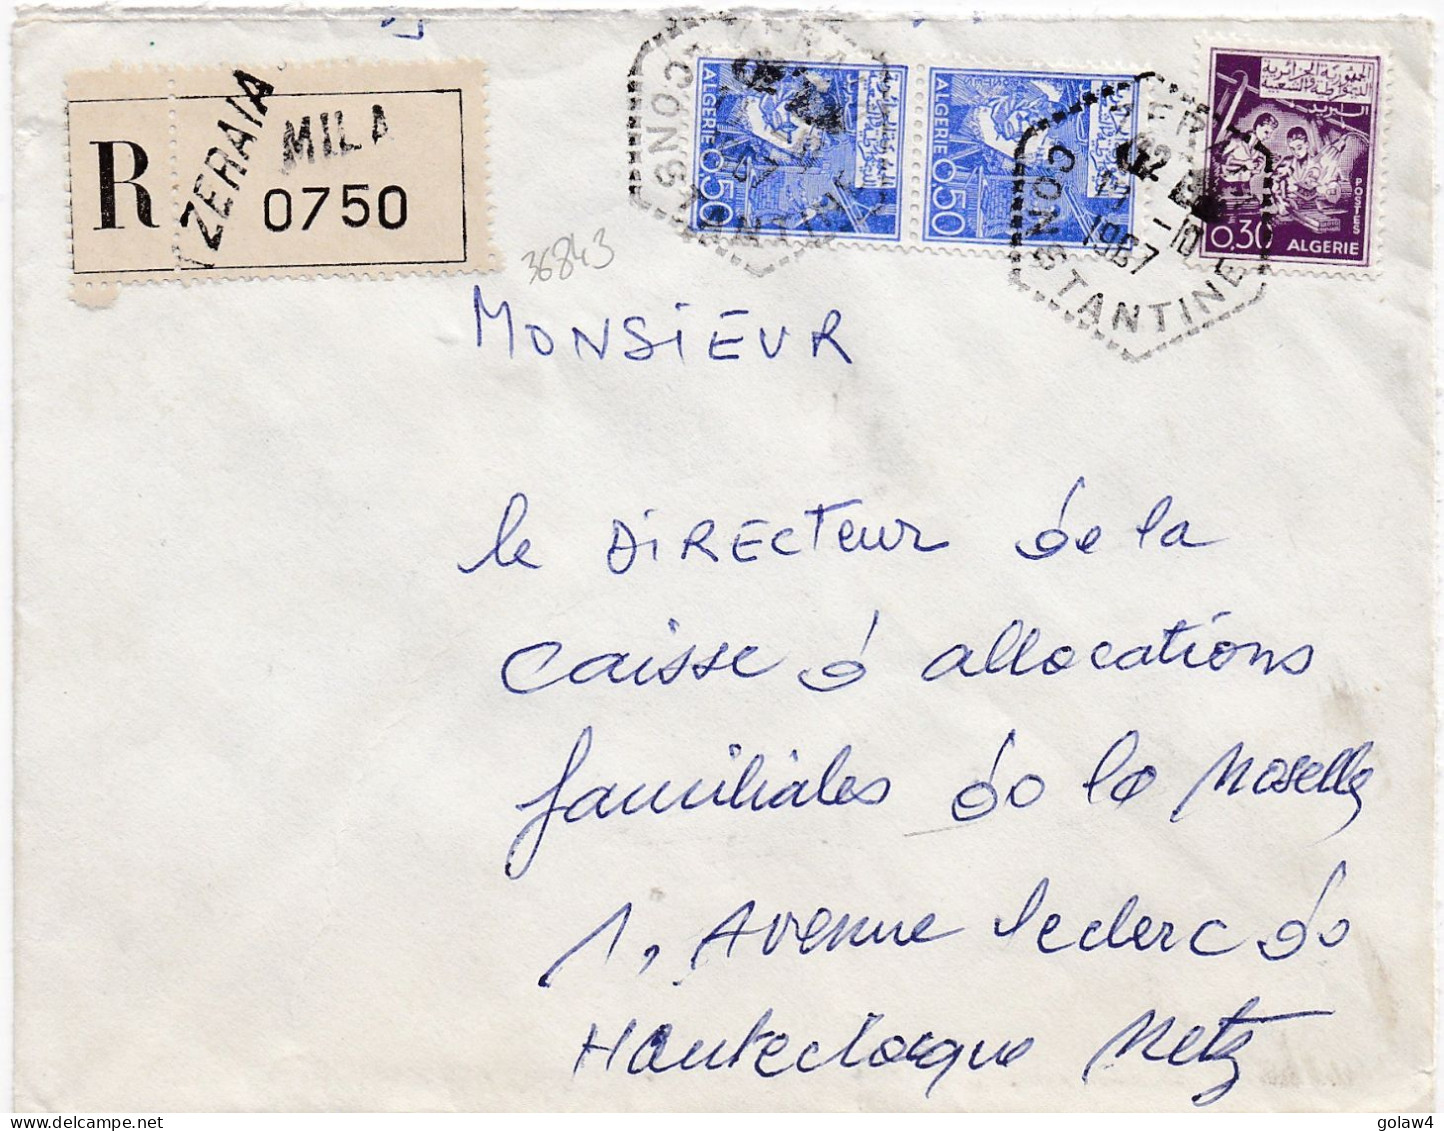 R
ZERAIA
MILA
0750
36843
ALGERIE 0,50
ALGERIE 0,50
الجمهورية الجزائرية
الديمقراطية والشعبية
البريد
POSTES
0,30 ALGERIE
CONSTANTINE
ZERAIA
CONSTANTINE
17 -10
1967
MONSIEUR
le DIRECTEUR de la
caisse d'allocations
familiales de la Moselle
1, Avenue leclerc de
Hauteclocque Metz
golaw4